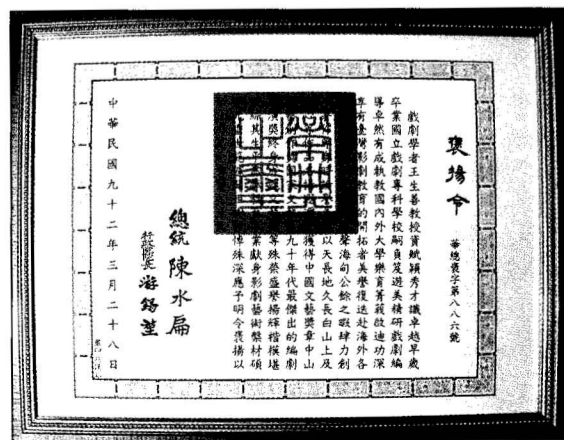 褒揚令
華總褒字第八八六號
戲劇學者王生善教授資賦穎秀才識卓越早歲
卒業國立戲劇專科學校嗣負笈遊美精研戲劇編
導卓然有成執教國內外大學樂育菁莪啟迪功深
享有臺灣影劇教育的開拓者美譽復迭赴海外各
聲海甸公餘之暇肆力創
以天長地久長白山上及
獲得中國文藝獎章中山
九十年代最傑出的編劇
獎終身 等殊榮盛譽揚輝楷模堪
其生 業獻身影劇藝術槃材碩
悼殊深應予明令褒揚以
總統 陳水扁
行政院院長 游錫堃
中華民國九十二年三月二十八日